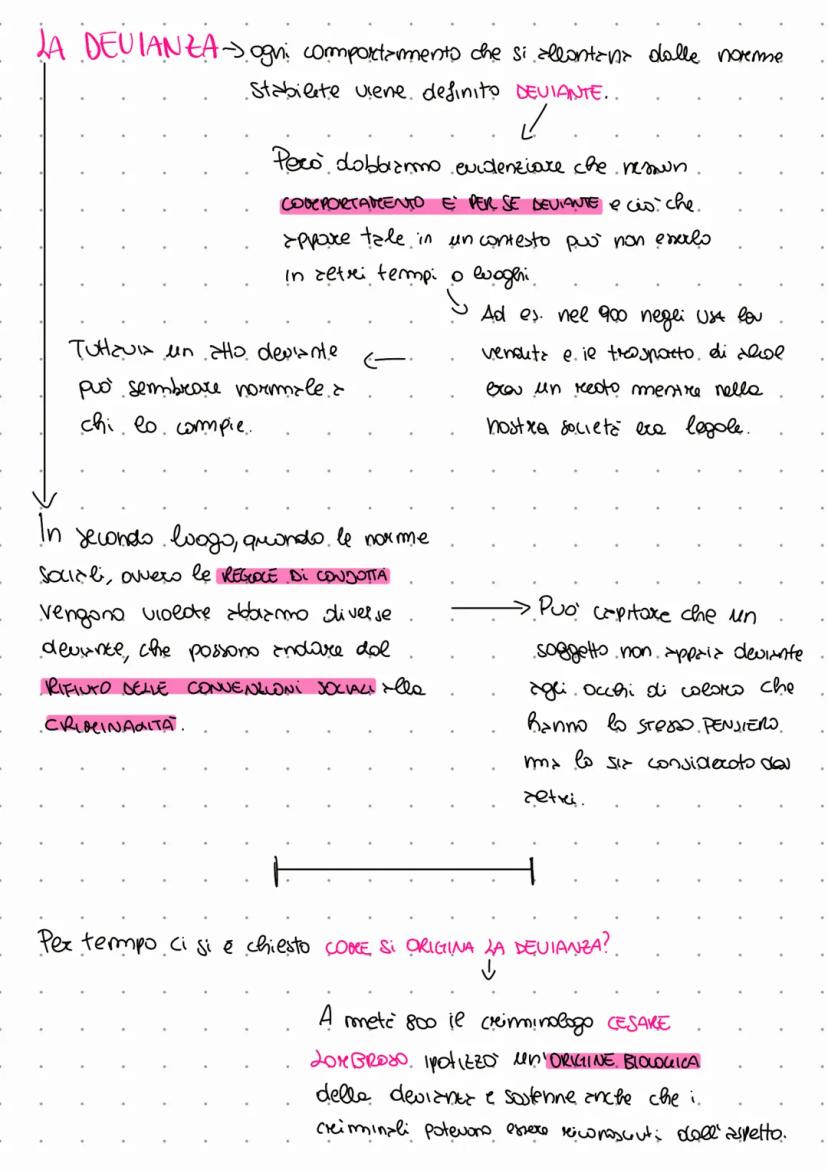 LA DEVIANZA → ogni comportamento che si allontana dalle norme
stabilite viene definito DEVIANTE.
Però dobbiamo evidenziare che nessun
COMPORTAMENTO E' PER SE DEVIANTE e ciò che
appare tale in un contesto può non esserlo
in altri tempi o luoghi.
Ad es. nel 900 negli USA la
vendita e il trasporto di alcol
era un reato mentre nella
nostra società era legale.
Tuttavia un atto deviante
può sembrare normale a
chi lo compie.
In secondo luogo, quando le norme
sociali, ovvero le REGOLE DI CONDOTTA
vengono violate abbiamo diverse
devianze, che possono andare dal
RIFIUTO DELLE CONVENZIONI SOCIALI alla
CRIMINALITÀ.
Può capitare che un
soggetto non appaia deviante
agli occhi di coloro che
hanno lo stesso PENSIERO
ma lo sia considerato da
altri.
Per tempo ci si è chiesto COME SI ORIGINA LA DEVIANZA?
A metà 800 il criminologo CESARE
LOMBROSO ipotizzò un'ORIGINE BIOLOGICA
della devianza e sostenne anche che i
criminali potevano essere riconosciuti dall'aspetto.